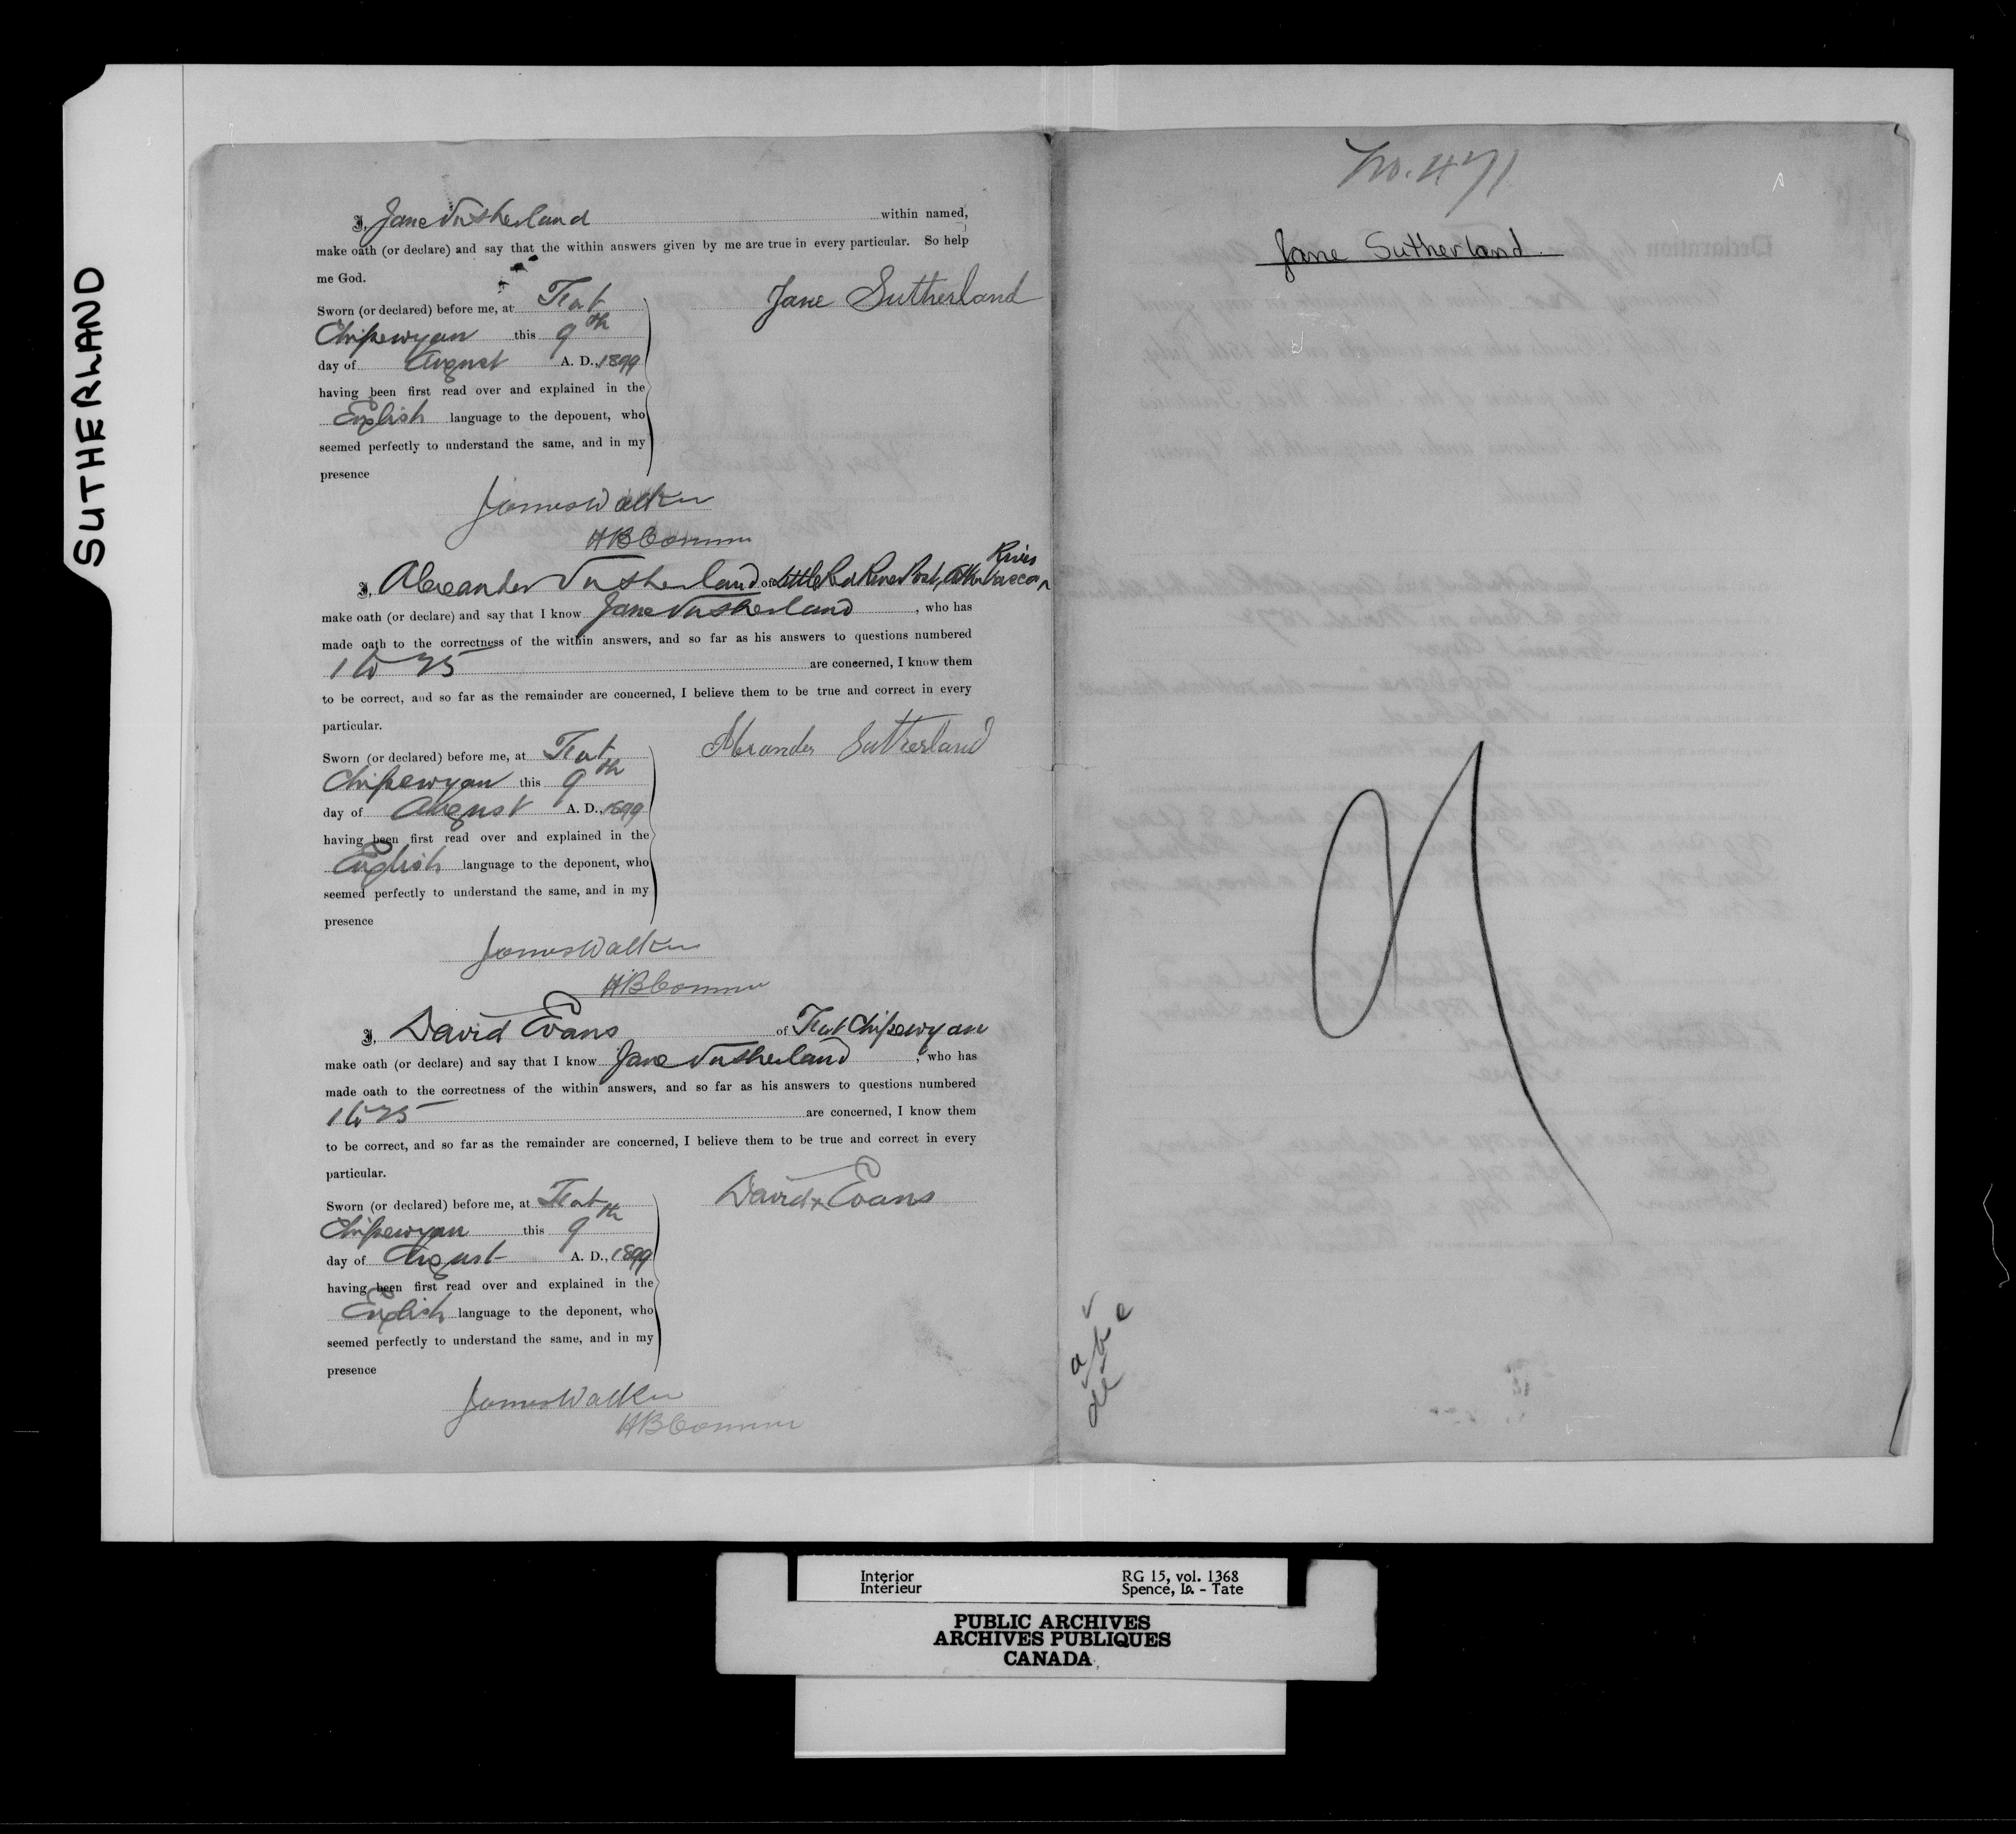 SUTHERLAND
I, Jane Sutherland within named,
make oath (or declare) and say that the within answers given by me are true in every particular. So help
me God.
Sworn (or declared) before me, at Fort
Chipewyan this 9th
day of August A. D., 1899
having been first read over and explained in the
English language to the deponent, who
seemed perfectly to understand the same, and in my
presence
Jane Sutherland
James Walker
HB Commr
I, Alexander Sutherland of Little Red River Post, Athabasca River
make oath (or declare) and say that I know Jane Sutherland, who has
made oath to the correctness of the within answers, and so far as his answers to questions numbered
1 to 25 are concerned, I know them
to be correct, and so far as the remainder are concerned, I believe them to be true and correct in every
particular.
Sworn (or declared) before me, at Fort
Chipewyan this 9th
day of August A. D., 1899
having been first read over and explained in the
English language to the deponent, who
seemed perfectly to understand the same, and in my
presence
Alexander Sutherland
James Walker
HB Commr
I, David Evans of Fort Chipewyan
make oath (or declare) and say that I know Jane Sutherland, who has
made oath to the correctness of the within answers, and so far as his answers to questions numbered
1 to 25 are concerned, I know them
to be correct, and so far as the remainder are concerned, I believe them to be true and correct in every
particular.
Sworn (or declared) before me, at Fort
Chipewyan this 9th
day of August A. D., 1899
having been first read over and explained in the
English language to the deponent, who
seemed perfectly to understand the same, and in my
presence
David x Evans
James Walker
HB Commr
No. 471
Jane Sutherland
Interior RG 15, vol. 1368
Intérieur Spence, Is. - Tate
PUBLIC ARCHIVES
ARCHIVES PUBLIQUES
CANADA